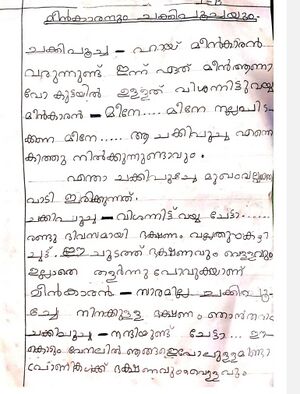 മീൻകാരനും ചക്കിപൂച്ചയും.
ചക്കിപൂച്ച - ഹായ് മീൻകാരൻ
വരുന്നുണ്ട് ഇന്ന് ഏത് മീൻ ആണാ
വോ കുട്ടയിൽ ഉള്ളത് വിശന്നിട്ടു വയ്യ
മീൻകാരൻ - മീനേ..... മീനേ നല്ല പിട
ക്കണ മീനേ..... ആ ചക്കിപൂച്ച എന്നെ
കാത്തു നിൽക്കുന്നുണ്ടാവും.
എന്താ ചക്കിപൂച്ചേ മുഖം വല്ലാതെ
വാടി ഇരിക്കുന്നത്.
ചക്കിപൂച്ച - വിശന്നിട്ട് വയ്യ ചേട്ടാ......
രണ്ടു ദിവസമായി ഭക്ഷണം
ചൂട്. ഈ ചൂടത്ത് ഭക്ഷണവും വെള്ളവും
ഇല്ലാതെ തളർന്നു പോവുകയാണ്
മീൻകാരൻ - സാരമില്ല ചക്കിപൂ
ച്ചേ നിനക്കുള്ള ഭക്ഷണം ഞാൻ
ചക്കിപൂച്ച - നന്ദിയുണ്ട് ചേട്ടാ... ഈ
കൊടും വേനലിൽ ഞങ്ങളെപോലുള്ള
ഭക്ഷണവും വെള്ളവും